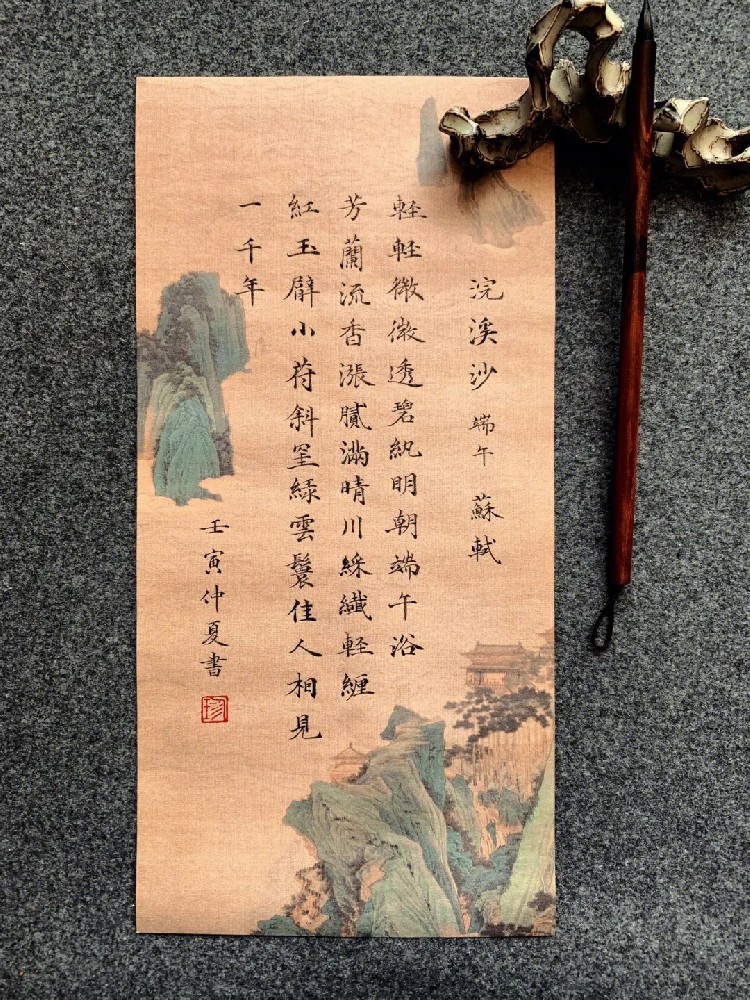 浣溪沙 端午 蘇軾
軽軽微微透碧紈明朝端午浴
芳蘭流香漲膩滿晴川綵纖軽纏
紅玉臂小符斜罣緑雲鬟佳人相見
一千年
壬寅仲夏書
珍